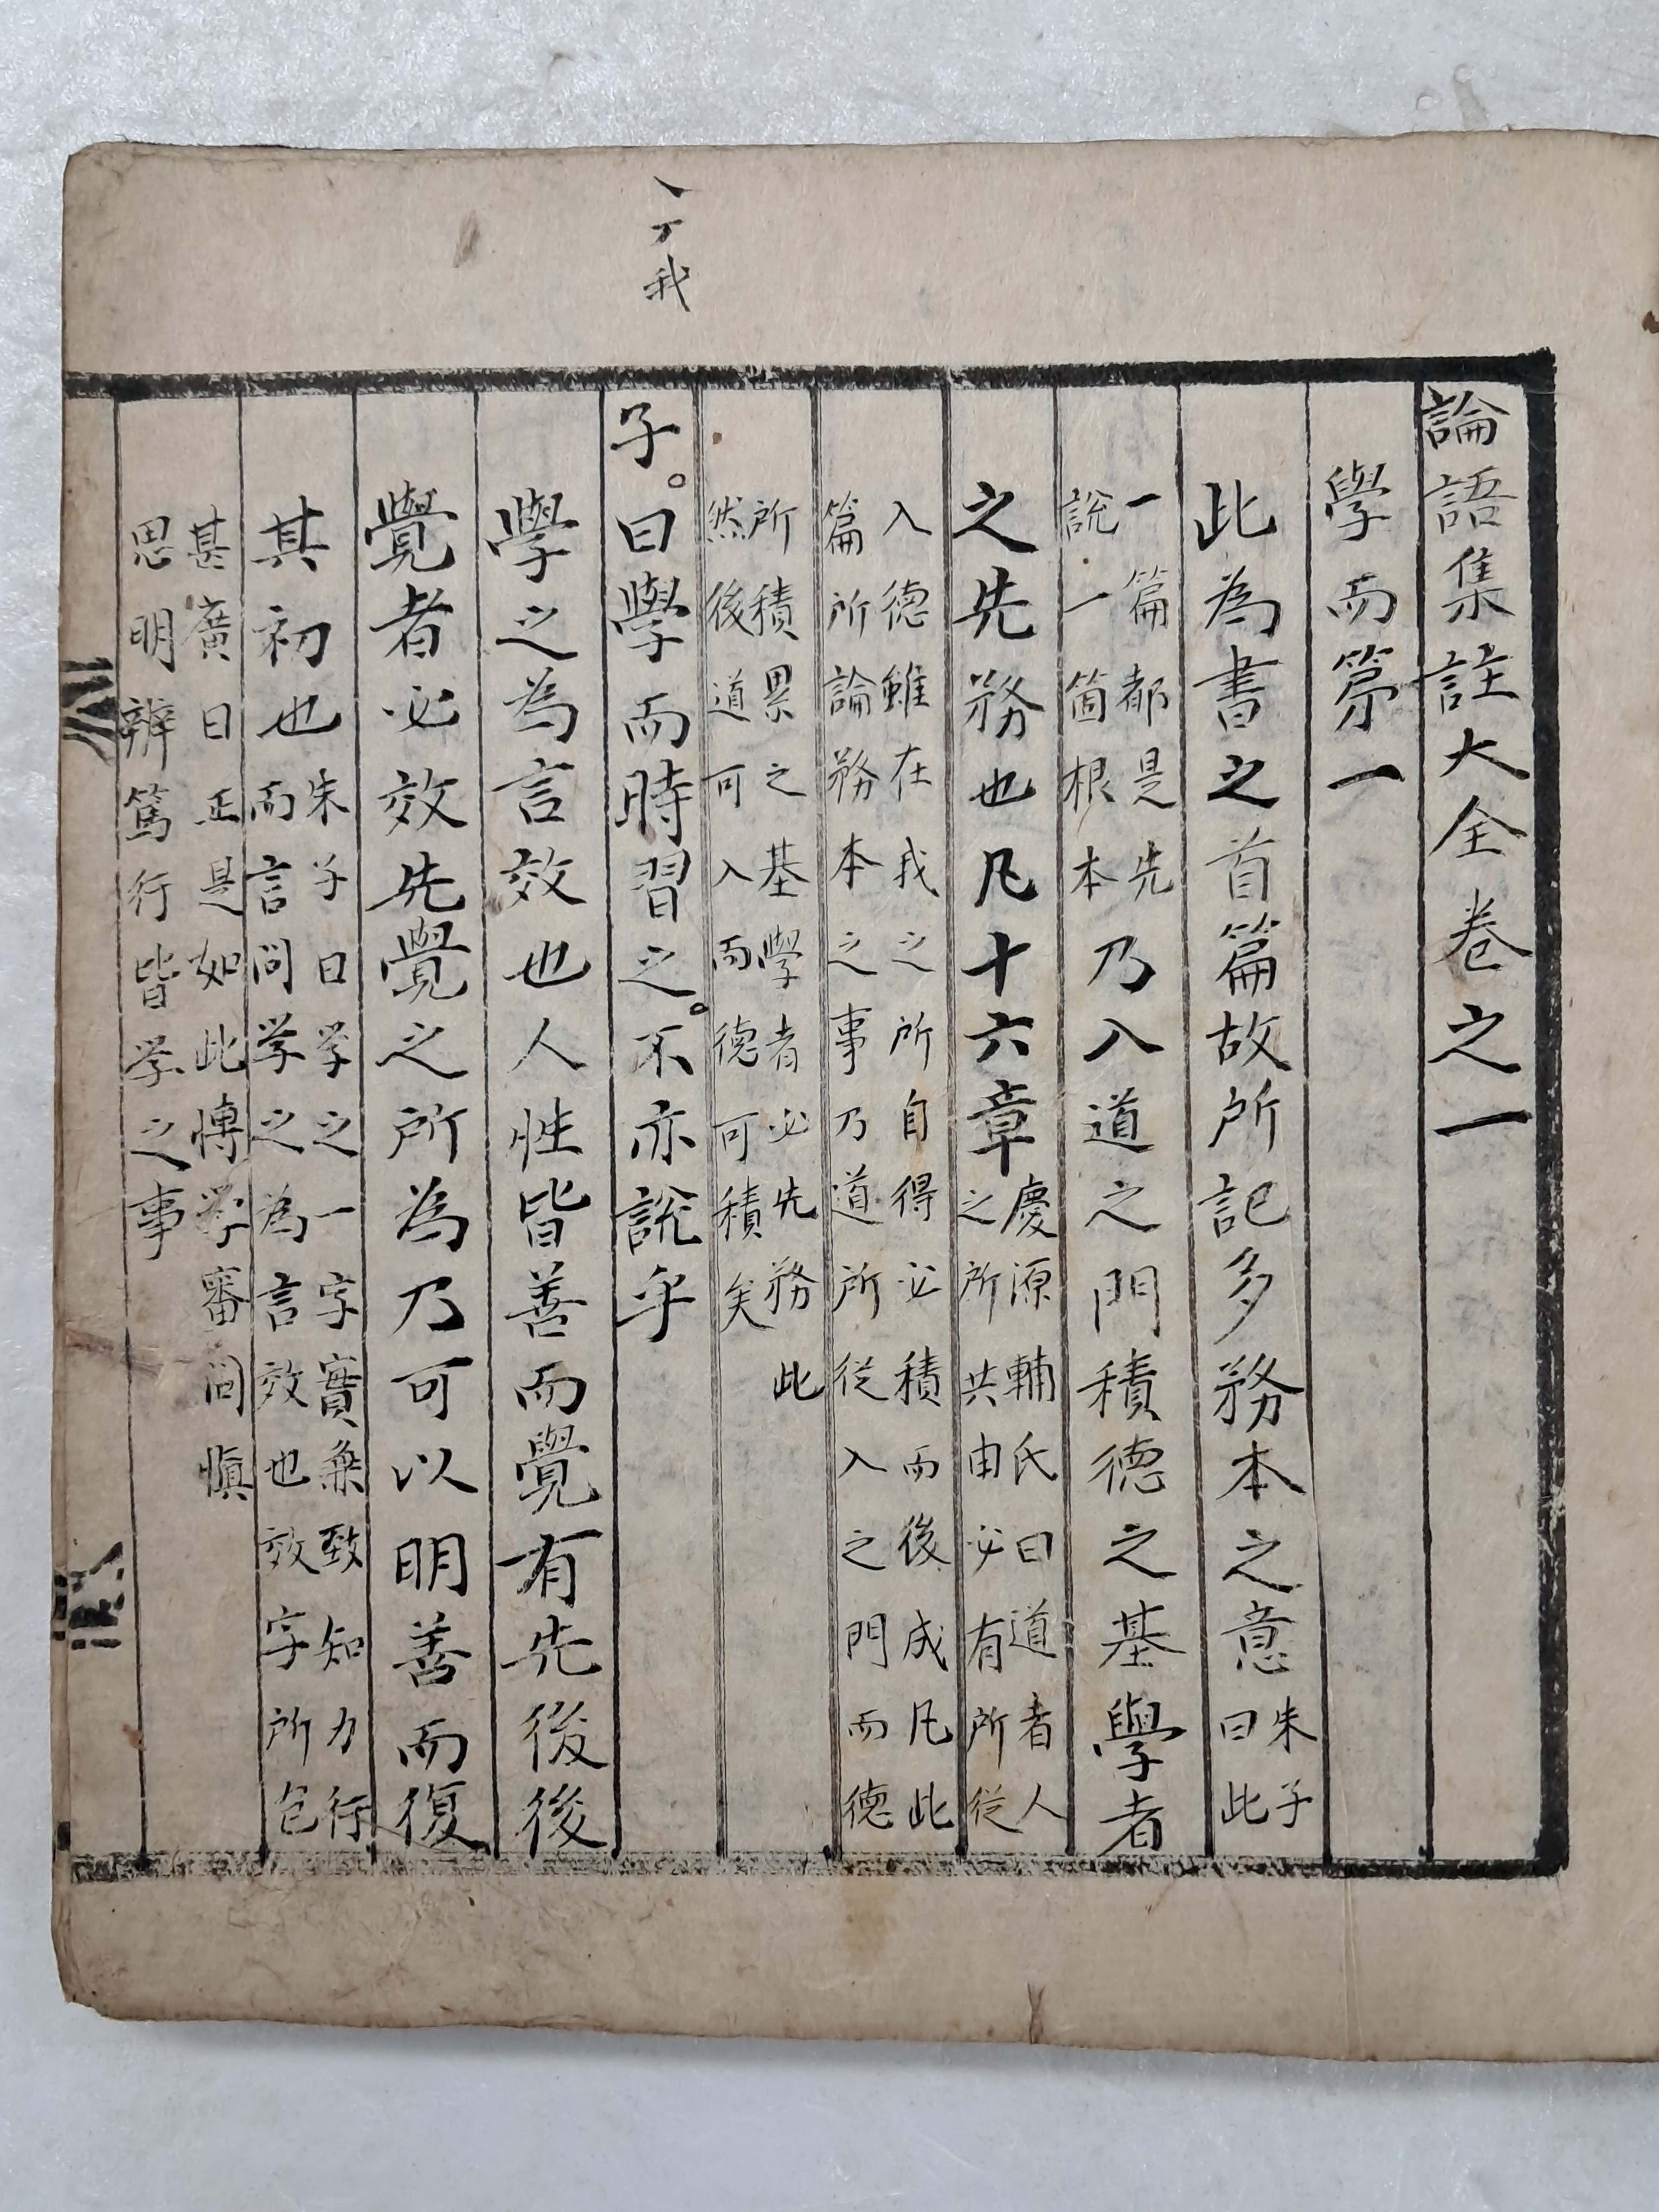 論語集註大全卷之一
學而第一
此為書之首篇故所記多務本之意朱子曰此
一篇都是先說一箇根本乃入道之門積德之基學者
之先務也凡十六章慶源輔氏曰道者人之所共由必有所從
入德雖在我之所自得必積而後成凡此篇所論務本之事乃道所從入之門而德
所積累之基學者必先務此然後道可入而德可積矣
子。曰學而時習之。不亦說乎
學之為言效也人性皆善而覺有先後後
覺者必效先覺之所為乃可以明善而復
其初也朱子曰学之一字實兼致知力行而言問学之為言效也效字所包
甚廣曰正是如此博学審问慎思明辨篤行皆学之事